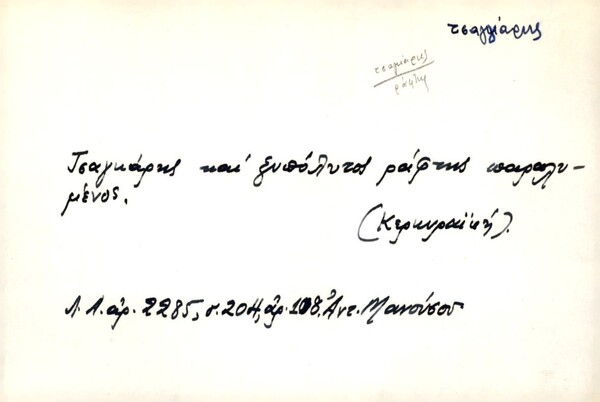 τσαγγάρης
τσαγκάρης
ράφτης
Τσαγκάρης καί ξυπόλυτος ράφτης παραλυ-
μένος.
(Κερκυραϊκή).
Λ.Α. άρ. 2285, σ. 204, άρ. 108, Αντ. Μανούσου